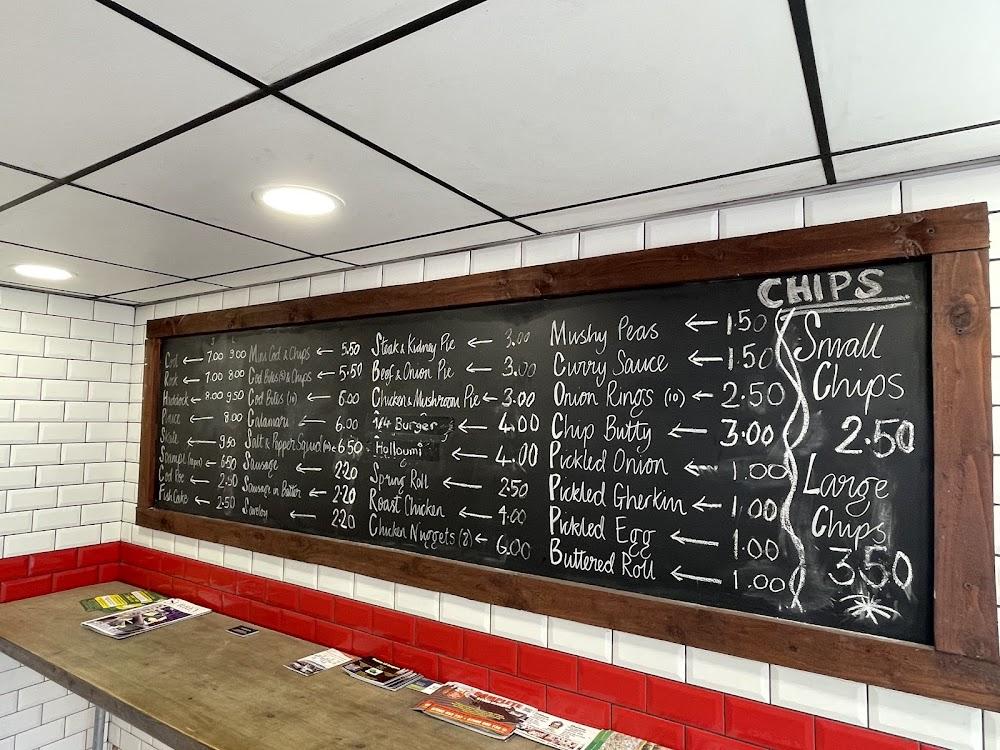 S L
Cod ← 7.00 9.00
Rock ← 7.00 8.00
Haddock ← 8.00 9.50
Plaice ← 8.00
Skate ← 9.50
← 6.50
Cod Roe ← 2.50
Fish Cake ← 2.50
Mini Cod & Chips ← 5.50
Cod Bites (5) & Chips ← 5.50
Cod Bites (10) ← 6.00
Calamari ← 6.00
Salt & Pepper Squid ← 6.50
Sausage ← 2.20
Sausage in Batter ← 2.20
Saveloy ← 2.20
Steak & Kidney Pie ← 3.00
Beef & Onion Pie ← 3.00
Chicken & Mushroom Pie ← 3.00
1/4 Burger ← 4.00
Halloumi ← 4.00
Spring Roll ← 2.50
Roast Chicken ← 4.00
Chicken Nuggets (8) ← 6.00
Mushy Peas ← 1.50
Curry Sauce ← 1.50
Onion Rings (10) ← 2.50
Chip Butty ← 3.00
Pickled Onion ← 1.00
Pickled Gherkin ← 1.00
Pickled Egg ← 1.00
Buttered Roll ← 1.00
CHIPS
Small
Chips
2.50
Large
Chips
3.50